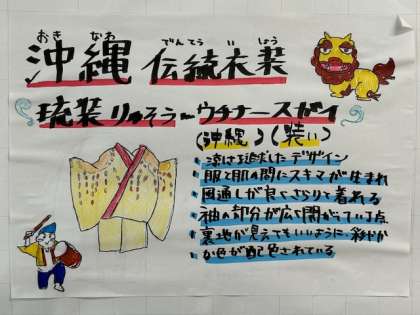 おき なわ でんとう い しょう
沖縄 伝統衣装
琉装 りゅそう ～ウチナースガイ
(沖縄) (装い)
涼は追求したデザイン
服と肌の間にスキマが生まれ
風通しが良くさらりと着れる
袖の部分が広く開がっている点
裏地が見えてもいいように、彩やか
な色が配色されている